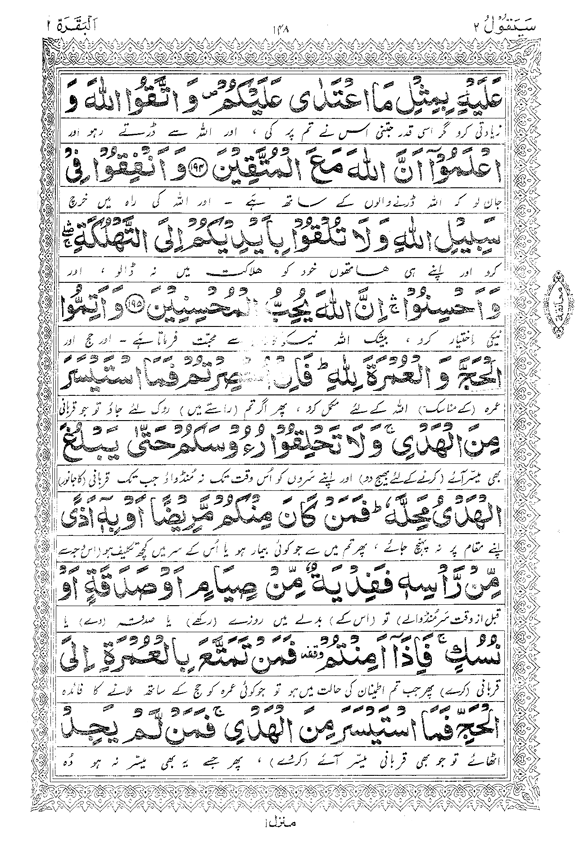 سَيَقُوْلُ ٢
١٤٨
اَلْبَقَرَة ٢
عَلَيْهِ بِمِثْلِ مَا اعْتَدٰى عَلَيْكُمْ ۪ وَاتَّقُوا اللّٰهَ وَ
زیادتی کرو مگر اسی قدر جتنی اس نے تم پر کی ، اور اللہ سے ڈرتے رہو اور
اعْلَمُوْۤا اَنَّ اللّٰهَ مَعَ الْمُتَّقِيْنَ ﴿١٩٤﴾ وَاَنْفِقُوْا فِيْ
جان لو کہ اللہ ڈرنے والوں کے ساتھ ہے ۔ اور اللہ کی راہ میں خرچ
سَبِيْلِ اللّٰهِ وَلَا تُلْقُوْا بِاَيْدِيْكُمْ اِلَى التَّهْلُكَةِ ۚۖ
کرو اور اپنے ہی ہاتھوں خود کو ہلاکت میں نہ ڈالو ، اور
وَاَحْسِنُوْا ۚ اِنَّ اللّٰهَ يُحِبُّ الْمُحْسِنِيْنَ ﴿١٩٥﴾ وَاَتِمُّوا
نیکی اختیار کرو ، بیشک اللہ سے محبت فرماتا ہے ۔ اور حج اور
الْحَجَّ وَالْعُمْرَةَ لِلّٰهِ ؕ فَاِنْ اُحْصِرْتُمْ فَمَا اسْتَيْسَرَ
عمرہ (کے مناسک) اللہ کے لئے مکمل کرو ، پھر اگر تم (راستے میں) روک لئے جاؤ تو جو قربانی
مِنَ الْهَدْيِ ۚ وَلَا تَحْلِقُوْا رُءُوْسَكُمْ حَتّٰى يَبْلُغَ
بھی میسر آئے (کرنے کے لئے بھیج دو) اور اپنے سروں کو اس وقت تک نہ منڈواؤ جب تک قربانی (کا جانور)
الْهَدْيُ مَحِلَّهٗ ؕ فَمَنْ كَانَ مِنْكُمْ مَّرِيْضًا اَوْ بِهٖۤ اَذًى
اپنے مقام پر نہ پہنچ جائے ، پھر تم میں سے جو کوئی بیمار ہو یا اس کے سر میں کچھ تکلیف ہو (اس وجہ سے
مِّنْ رَّاْسِهٖ فَفِدْيَةٌ مِّنْ صِيَامٍ اَوْ صَدَقَةٍ اَوْ
قبل از وقت سر منڈوالے) تو (اس کے) بدلے میں روزے (رکھے) یا صدقہ (دے) یا
نُسُكٍ ۚ فَاِذَاۤ اَمِنْتُمْ ۥ فَمَنْ تَمَتَّعَ بِالْعُمْرَةِ اِلَى
قربانی (کرے) پھر جب تم اطمینان کی حالت میں ہو تو جو کوئی عمرہ کو حج کے ساتھ ملانے کا فائدہ
الْحَجِّ فَمَا اسْتَيْسَرَ مِنَ الْهَدْيِ ۚ فَمَنْ لَّمْ يَجِدْ
اٹھائے تو جو بھی قربانی میسر آئے (کردے) ، پھر جسے یہ بھی میسر نہ ہو وہ
منزل١